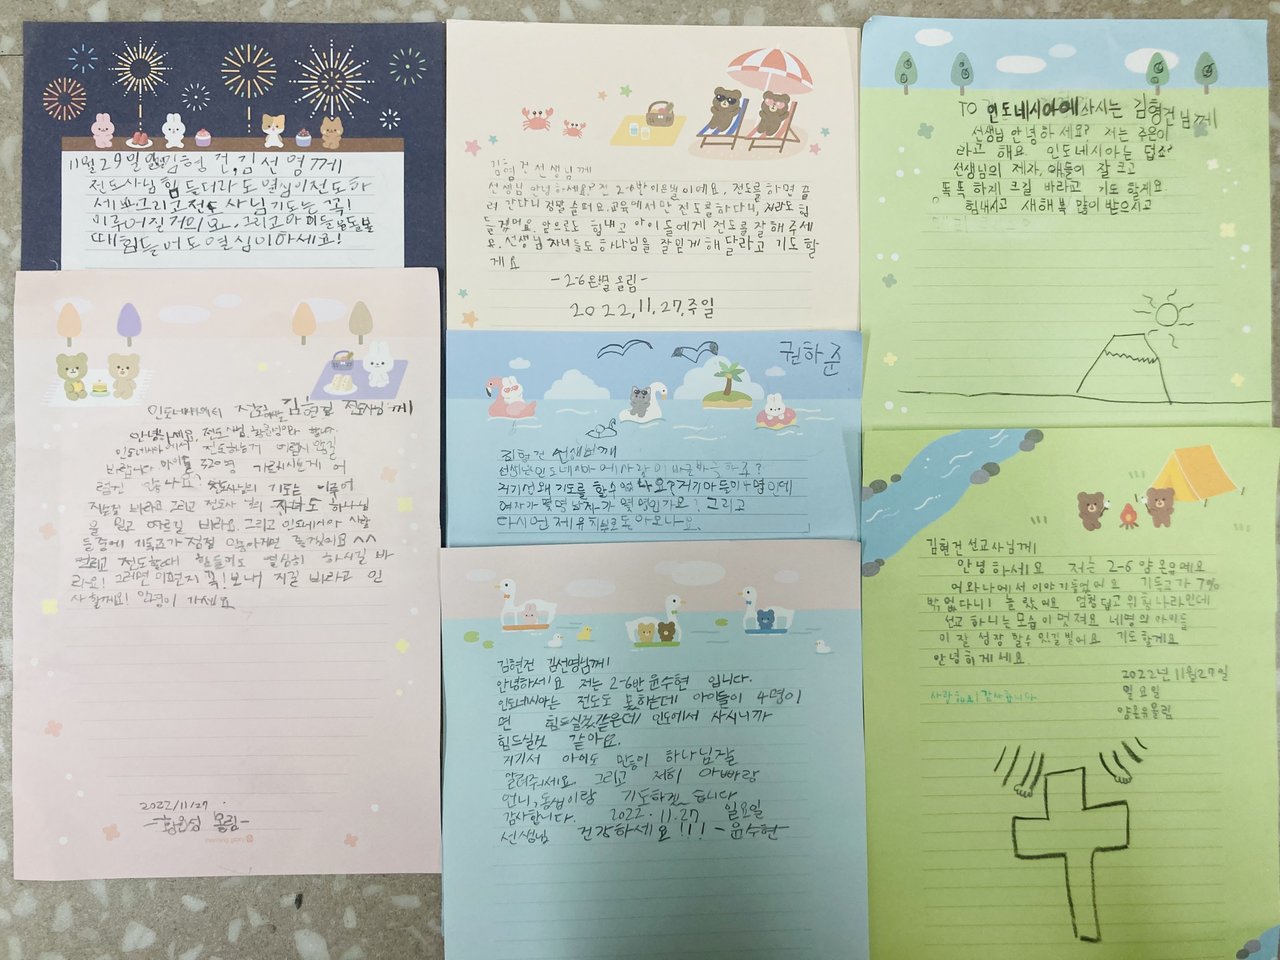 11월 29일 김형건, 김선영께
전도사님 힘들더라도 열심히 전도하
세요 그리고 전도사님 기도는 꼭!
이루어질거에요. 그리고 아이들을 돌볼
때 힘들어도 열심히하세요!
김형건 선생님께
선생님 안녕하세요? 전 2-6반 이은별이에요. 전도를 하면 끌
려 간다니 정말 슬퍼요. 교육에서만 전도를 하다니, 저라도 힘
들겠어요. 앞으로도 힘내고 아이들에게 전도를 잘 해 주세
요. 선생님 자녀들도 하나님을 잘 믿게 해달라고 기도할
게요
-2-6 은별 올림-
2022.11.27.주일
TO 인도네시아에 사시는 김형건님께
선생님 안녕하세요? 저는 주은이
라고 해요 인도네시아는 덥죠?
선생님의 제자, 애들이 잘 크고
똑똑하게 크길 바라고 기도 할게요
힘내시고 새해 복 많이 받으시고
인도네시아에서 김현건 전도사님께
안녕하세요, 전도사님, 합니다.
인도네시아에서 전도하는게 어렵지 않길
바랍니다 아이들 320명 가르치시는게 어
렵진 않나요? 전도사님의 기도는 이루어
지는걸 바라고 그리고 전도사님의 자녀도 하나님
을 믿고 따르길 바라요. 그리고 인도네시아 사람
들중에 기독교가 점점 많아지면 좋겠어요 ^^
그리고 전도할때 힘들어도 열심히 하시길 바
라요! 그러면 이편지 꼭! 보내 지길 바라고 인
사할게요! 안녕히 가세요
2022/11/27
- 올림-
morning glory
권하준
김형건 선생님께
선생님 인도네시아에 사람이 바글바글 하죠?
저기선 왜 기도를 할 수 없나요? 거기 아들이 4명인데
여자가 몇명 남자가 몇 명인가요? 그리고
다시 언제 유치부로 돌아오나요.
김현건 김선영님께
안녕하세요 저는 2-6반 윤수현 입니다.
인도네시아는 전도도 못하는데 아이들이 4명이
면 힘드실것같은데 인도에서 사시니까
힘드실것 같아요.
거기서 아이도 만들이 하나님 잘
알려주세요. 그리고 저희 아빠랑
언니, 동생이랑 기도하겠습니다
감사합니다. 2022.11.27 일요일
선생님 건강하세요!!! -윤수현-
김현건 선교사님께
안녕하세요 저는 2-6 양은유예요
여와나에서 이야기 들었어요 기독교가 7%
밖 없다니! 놀랐어요 엄청 덥고 위험 나라인데
선교 하니는 모습이 멋져요 네명의 아이들
이 잘 성장 할수 있길 빌어요 기도할게요
안녕하게세요
사랑해요! 감사합니다
2022년 11월 27일
일요일
양은유올림